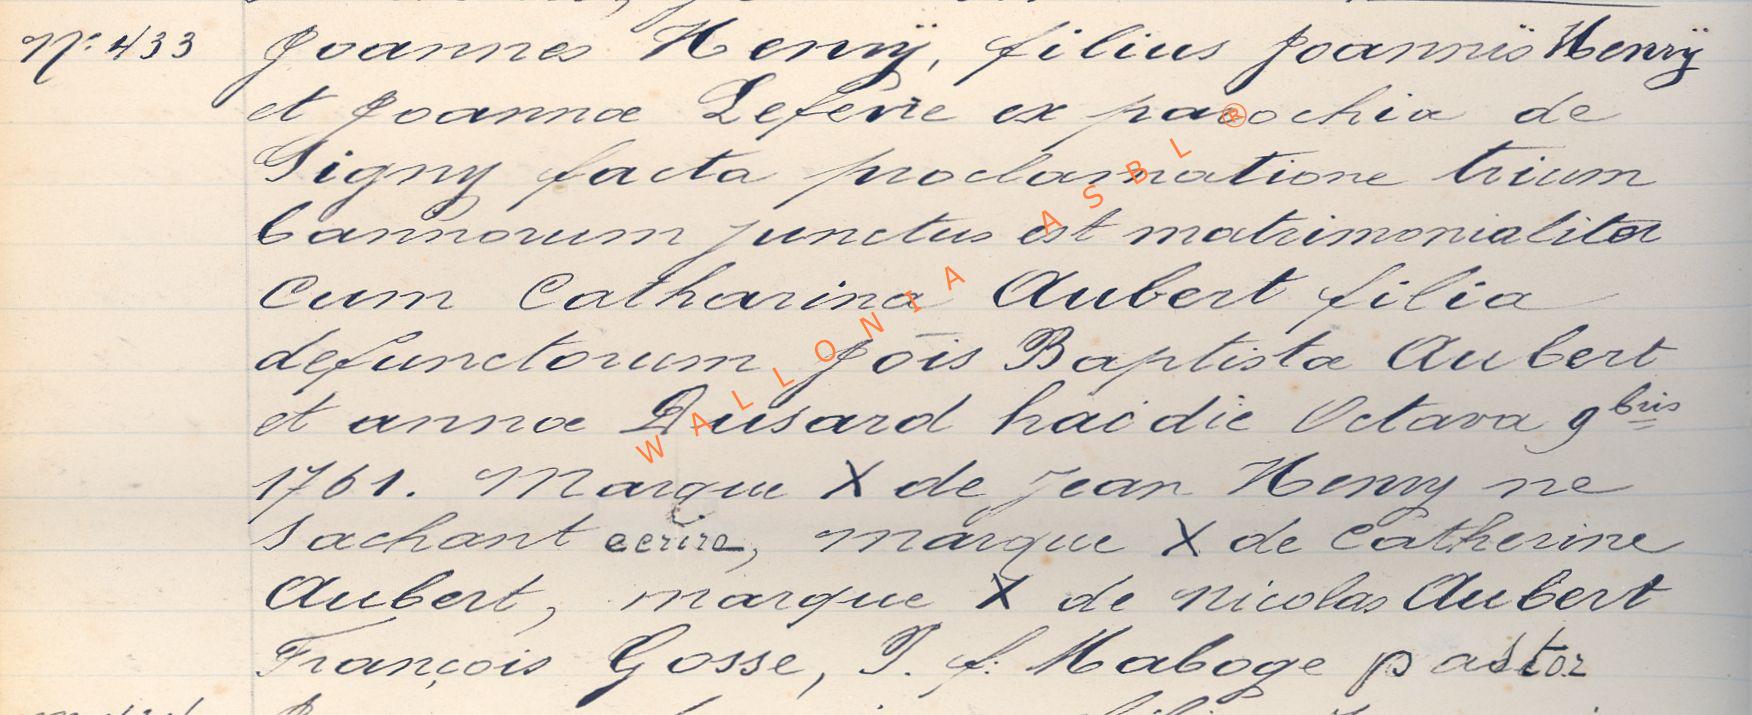 N° 433 Joannes Henrÿ, filius Joannis Henrÿ
et Joannæ Lefèvre ex parochia de
Signy facta proclamatione trium
bannorum junctus est matrimonialiter
Cum Catharina Aubert filia
defunctorum Jōis Baptistæ Aubert
et annæ Dusard hac die Octava 9bris
1761. Marque X de Jean Henry ne
Sachant ecrire, marque X de Catherine
Aubert, marque X de Nicolas Aubert
François Gosse, P. f. Maboge pastor
WALLONIA ASBL ®